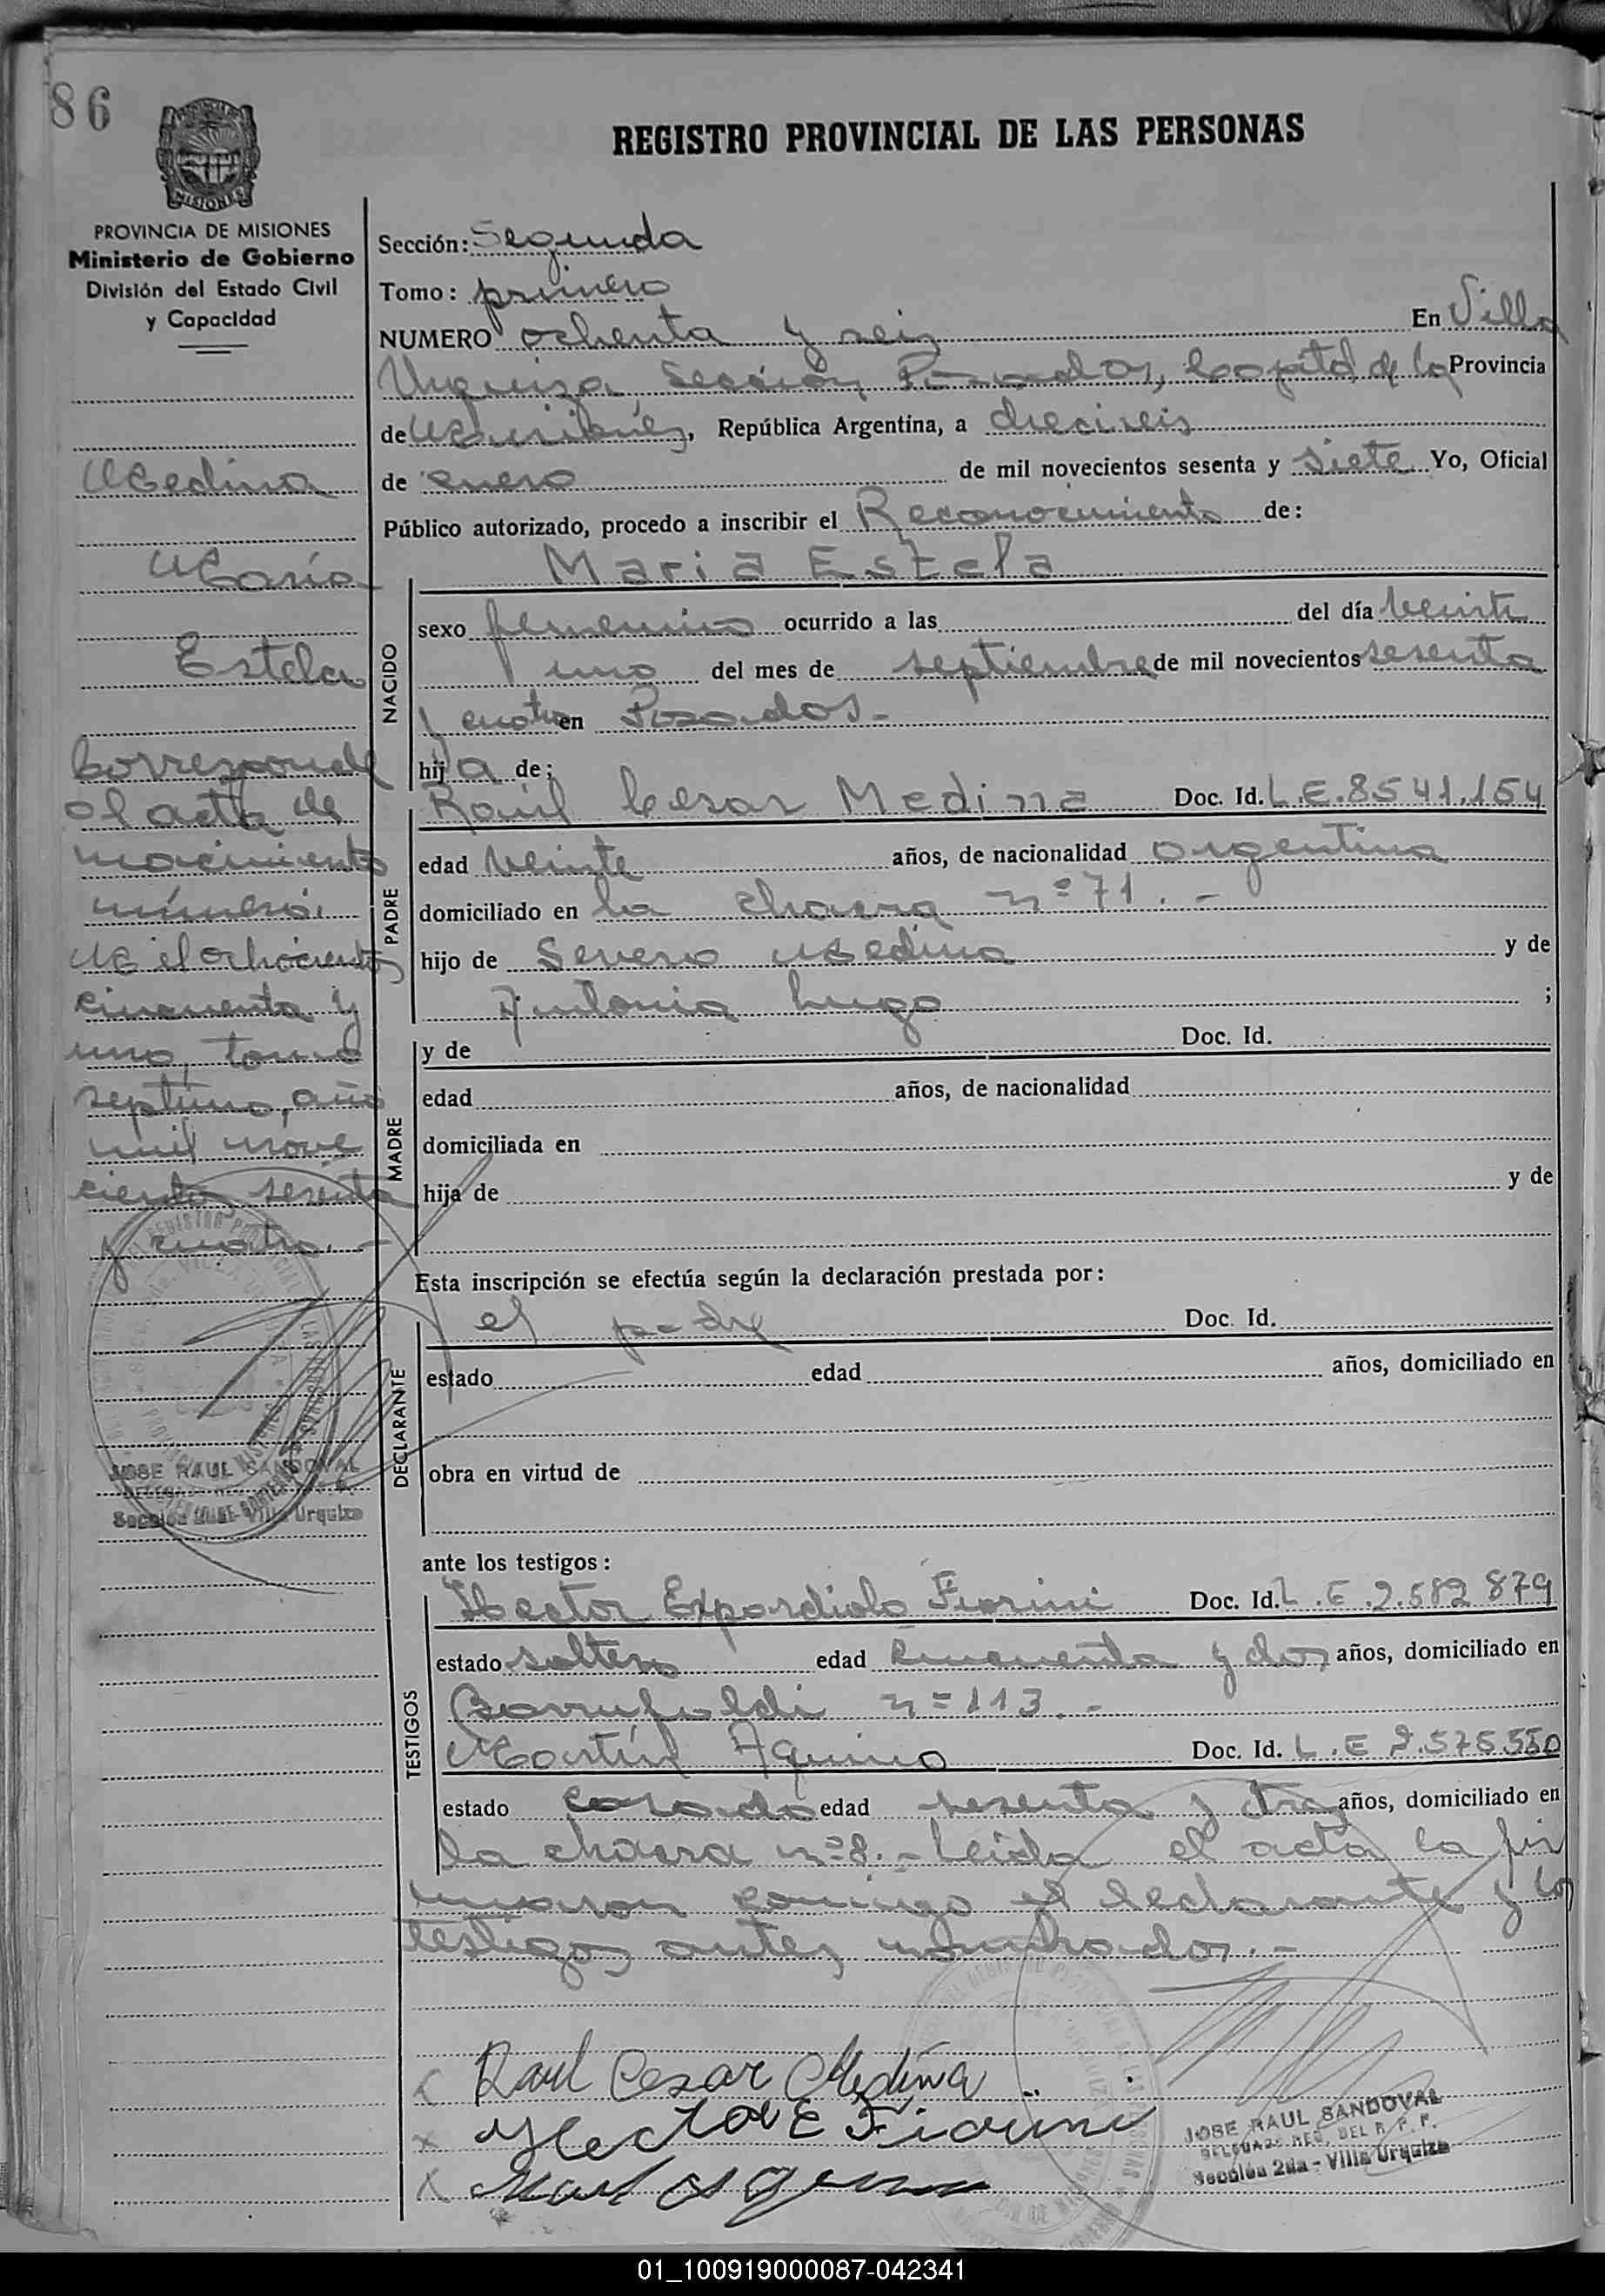 86
REGISTRO PROVINCIAL DE LAS PERSONAS
MISIONES
PROVINCIA DE MISIONES
Ministerio de Gobierno
División del Estado Civil
y Capacidad
Medina
María
Estela
Corresponde
al acta de
nacimiento
número:
Mil ochocientos
cincuenta y
uno, tomo
septimo, año
mil nove
cientos sesenta
y cuatro.-
JOSE RAUL SANDOVAL
Sección 2da - Villa Urquiza
Sección: Segunda
Tomo: primero
NUMERO ochenta y seis En Villa
Urquiza, Sección Posadas, Capital de la Provincia
de Misiones, República Argentina, a dieciseis
de enero de mil novecientos sesenta y siete Yo, Oficial
Público autorizado, procedo a inscribir el Reconocimiento de:
Maria Estela
NACIDO
sexo femenino ocurrido a las del día veinti
uno del mes de septiembre de mil novecientos sesenta
y cuatro en Posadas.-
hija de;
PADRE
Raúl Cesar Medina Doc. Id. L.E. 8541.154
edad veinte años, de nacionalidad argentina
domiciliado en la chacra nº 71.-
hijo de Severo Medina y de
Antonia Lugo ;
MADRE
y de Doc. Id.
edad años, de nacionalidad
domiciliada en
hija de y de
Esta inscripción se efectúa según la declaración prestada por:
DECLARANTE
el padre Doc. Id.
estado edad años, domiciliado en
obra en virtud de
ante los testigos:
TESTIGOS
Hector Fiorini Doc. Id. L.E. 2.582 879
estado soltero edad cincuenta y dos años, domiciliado en
nº 113.-
Martín Aquino Doc. Id. L.E 2.575.550
estado casado edad sesenta y tres años, domiciliado en
la chacra nº 8.- Leída el acta la fir
maron conmigo el declarante y los
testigos antes nombrados.-
x Raul Cesar Medina
x Hector E Fiorini
x
JOSE RAUL SANDOVAL
DELEGADO REG. DEL R. P. P.
Sección 2da - Villa Urquiza
01_100919000087-042341